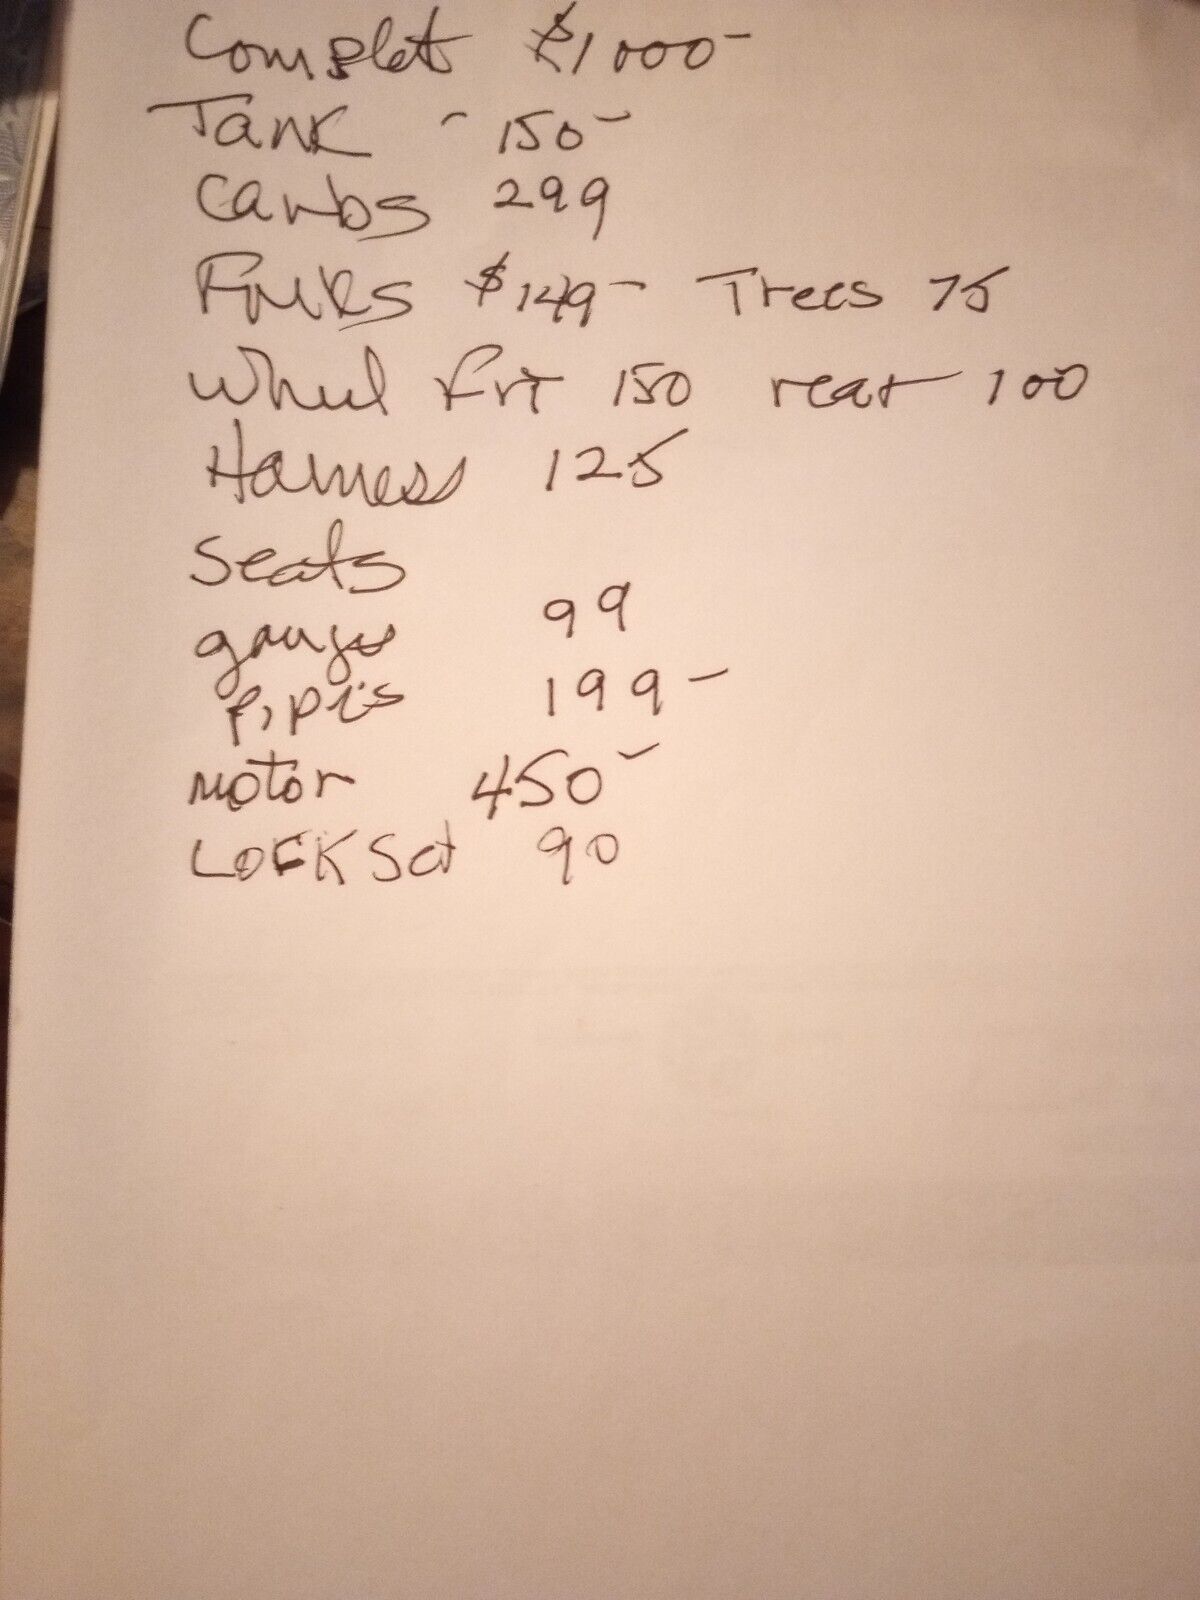 Complet $1000-
Tank - 150-
Carbs 299
Forks $149- Trees 75
Wheel Frt 150 rear 100
Harness 125
Seats
gauges 99
pipes 199-
motor 450-
LOCK Set 90